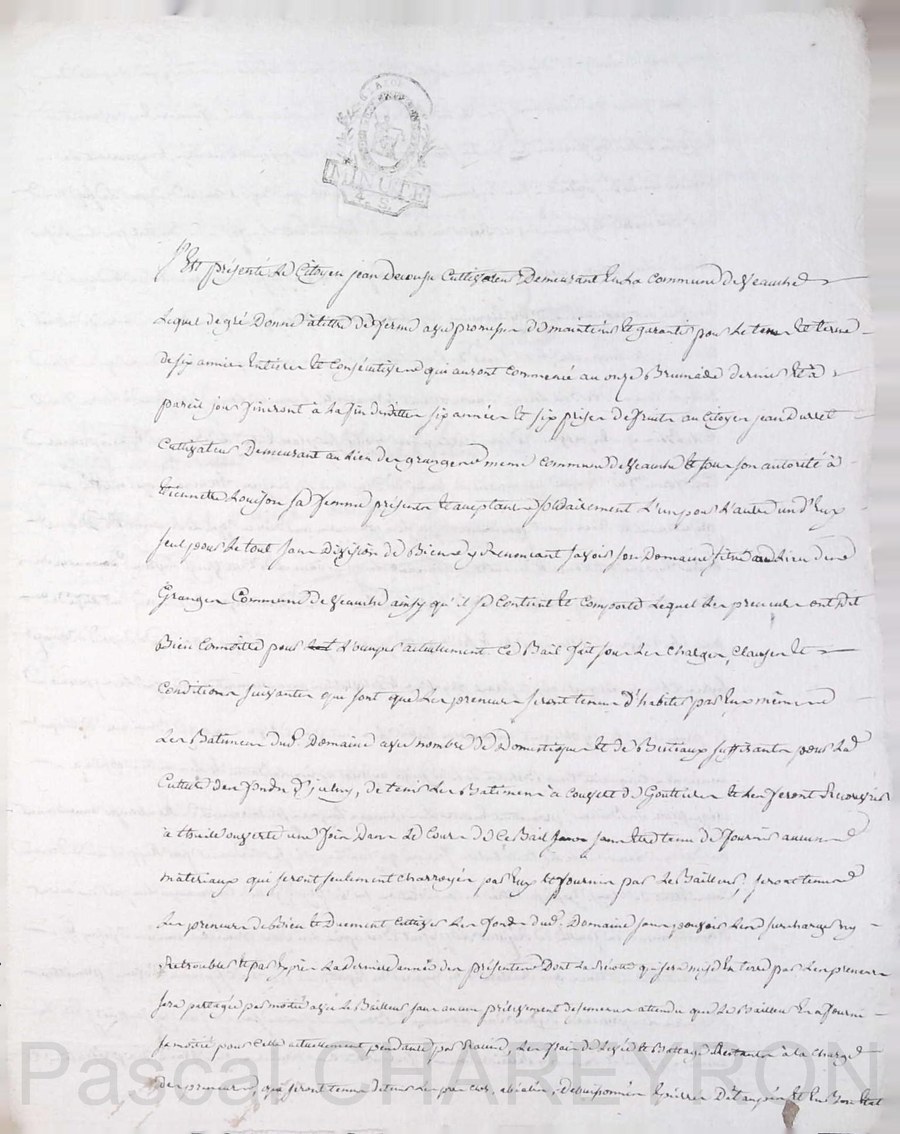 MINUTE
4. S.
S'est présenté le Citoyen jean decouse Cultivateur Demeurant en la Commune de Veauche
Lequel de gré Donne à titre de ferme avec promesse de maintenir et garantir pour le tems et terme
de six années Entières et Consécutives qui auront Commencé au onze Brumaire dernier et à
pareil jour finiront à la fin desdittes six années et six prises de fruits au Citoyen jean Durret
Cultivateur Demeurant au lieu des granges même Commune de Veauche et sous son autorité à
sa femme présente et acceptante solidairement L'un pour L'autre un d'Eux
seul pour le tout sans Division de Biens y Renonçant savoir son Domaine situé au Lieu des
Granges Commune de Veauche ainsy qu'il se Contient et Comporte Lequel Les preneurs ont dit
Bien Connoitre pour L'occuper actuellement Ce Bail fait sous Les Charges, Clauses et
Conditions suivantes qui sont que Les preneurs seront tenus d'habiter par Eux mêmes
Les Batiments dud. Domaine avec nombre de Domestiques et de Bestiaux suffisants pour La
Culture des fonds d'iceluy, de tenir Les Batiments à Couvert de Gouttières et Les feront Recouvrir
à thuile ouverte une fois Dans Le Cours de Ce Bail sans Etre tenus de fournir aucuns
materiaux qui seront seulement charroyés par Eux et fournis par Le Bailleur, seront tenus
Les preneurs de Bien et Duement Cultiver Les fonds dud. Domaine sans pouvoir Les surcharger ny
Retroubler et pas La derniere année des présentes Dont La Récolte qui sera mise En terre par Les preneurs
sera partagée par moitié avec Le Bailleur sans aucun prélevement de semences attendu que Le Bailleur En a fourni
sa moitié pour Celle actuellement pendante par Racine, Les frais de Levée et Battage Restants à La Charge
des preneurs, qui seront tenus de tenir Les prés Clos, abialés, Debuissonnés Epierrés D'étaupés Et En Bon Etat
Pascal CHAREYRON